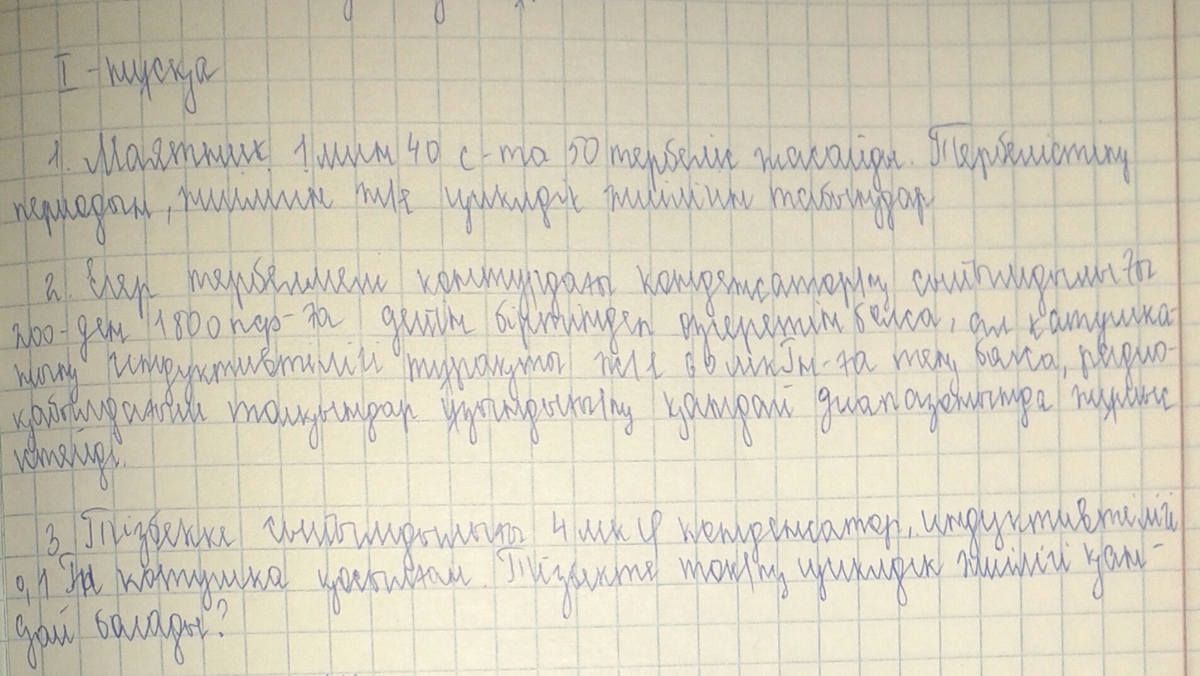 I - нусқа
1. Маятник 1 мин 40 с-та 50 тербеліс жасайды. Тербелістің
периодын, жиілігін ж/е циклдік жиілігін табыңдар
2. Егер тербелмелі контурдағы конденсатордың сыйымдылығы
200-ден 1800 пф-ға дейін біртіндеп өзгеретін болса, ал катушка-
ның индуктивтілігі тұрақты ж/е 60 мкГн-ға тең болса, радио-
қабылдағыш толқындар ұзындығының қандай диапазонында жұмыс
істейді.
3. Тізбекке сыйымдылығы 4 мкФ конденсатор, индуктивтілігі
0,1 Гн катушка қосылған. Тізбекте токтың циклдік жиілігі қан-
дай болады?